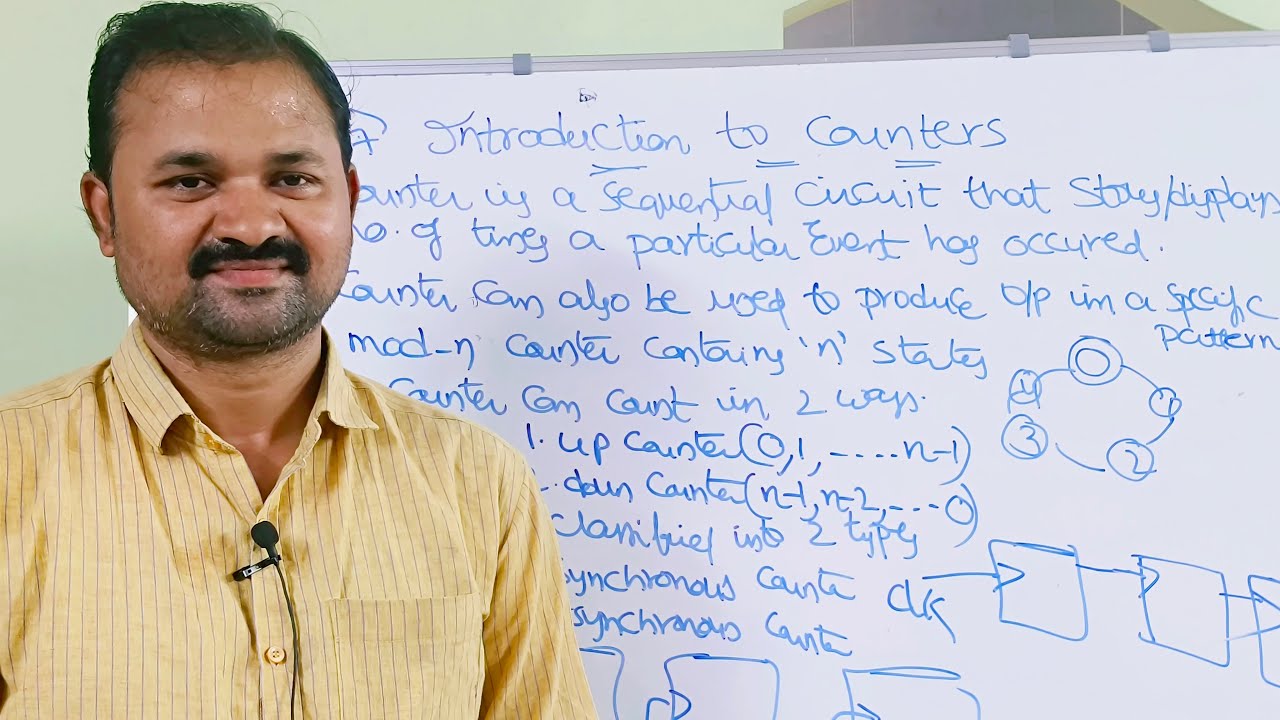 Introduction to Counters
ounter is a sequential circuit that stores/displays
no. of times a particular Event has occured.
Counter can also be used to produce o/p in a specific
pattern
mod-n counter contains 'n' states
Counter can count in 2 ways.
1. up counter (0,1, ----- n-1)
2. down counter (n-1, n-2, --- 0)
classified into 2 types
synchronous counte
synchronous counte
0
1
2
3
4
CLK